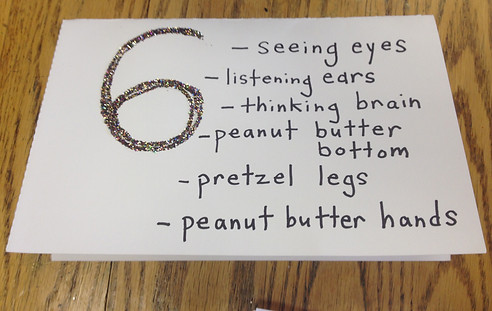 6
- seeing eyes
- listening ears
- thinking brain
- peanut butter
bottom
- pretzel legs
- peanut butter hands